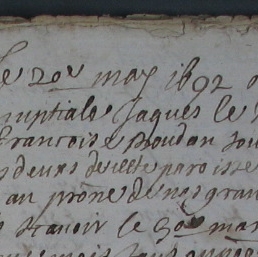 le 20e may 1692
nuptiale Jaques le
francoise boudon
deux de cette paroisse
au prone de nos gran
scavoir le 30e mar